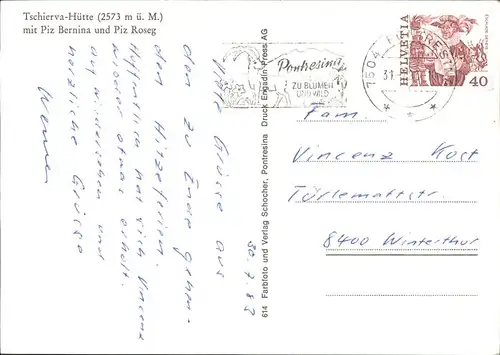 Tschierva-Hütte (2573 m ü. M.)
mit Piz Bernina und Piz Roseg
30.7.82
Grüsse aus
den zu Ende gehen-
den Hitzeferien.
Hoffentlich hat sich Vincenz
wieder etwas erholt.
Auf Wiedersehen und
herzliche Grüsse
Werner
614 Farbfoto und Verlag Schocher, Pontresina Druck Engadin Press AG
Pontresina
ZU BLUMEN
UND WILD
7504
31
HELVETIA
40
Fam.
Vincenz Kost
8400 Winterthur